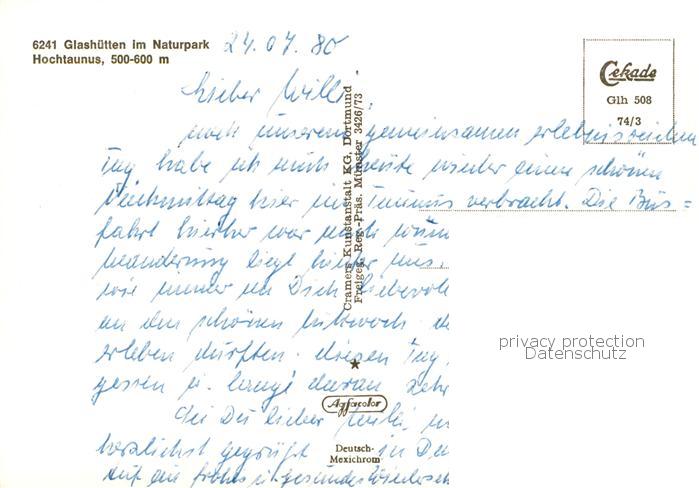 6241 Glashütten im Naturpark
Hochtaunus, 500-600 m
24.07.80
Lieber Willi,
nach unserem gemeinsamen erlebnisreichen
Tag habe ich mich heute wieder einen schönen
Nachmittag hier im Taunus verbracht. Die Bus=
fahrt hierher war
wanderung liegt hinter uns.
wie immer an Dich
an den schönen Mittwoch
erleben durften. diesen Tag
gessen u. lange daran
Sei Du lieber Willi,
herzlichst gegrüßt
Auf ein frohes u. gesundes Wiederseh
Cramers Kunstanstalt KG, Dortmund
Freigeg. Reg.-Präs. Münster 3426/73
Agfacolor
Deutsch-
Mexichrom
Cekade
Glh 508
74/3
privacy protection
Datenschutz